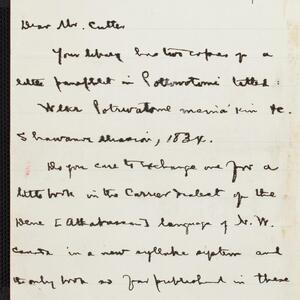 Dear Mr. Cutter
Your library has two copies of a
little pamphlet in Potowotomi titled:
Wlkx Potrwatome
Shawanoe Mission, 1834.
Do you care to exchange one for a
little book in the Carrier dialect of the
Dene [Athabascan] language of N. W.
Canada in a new syllabic system and
the only book so far published in these